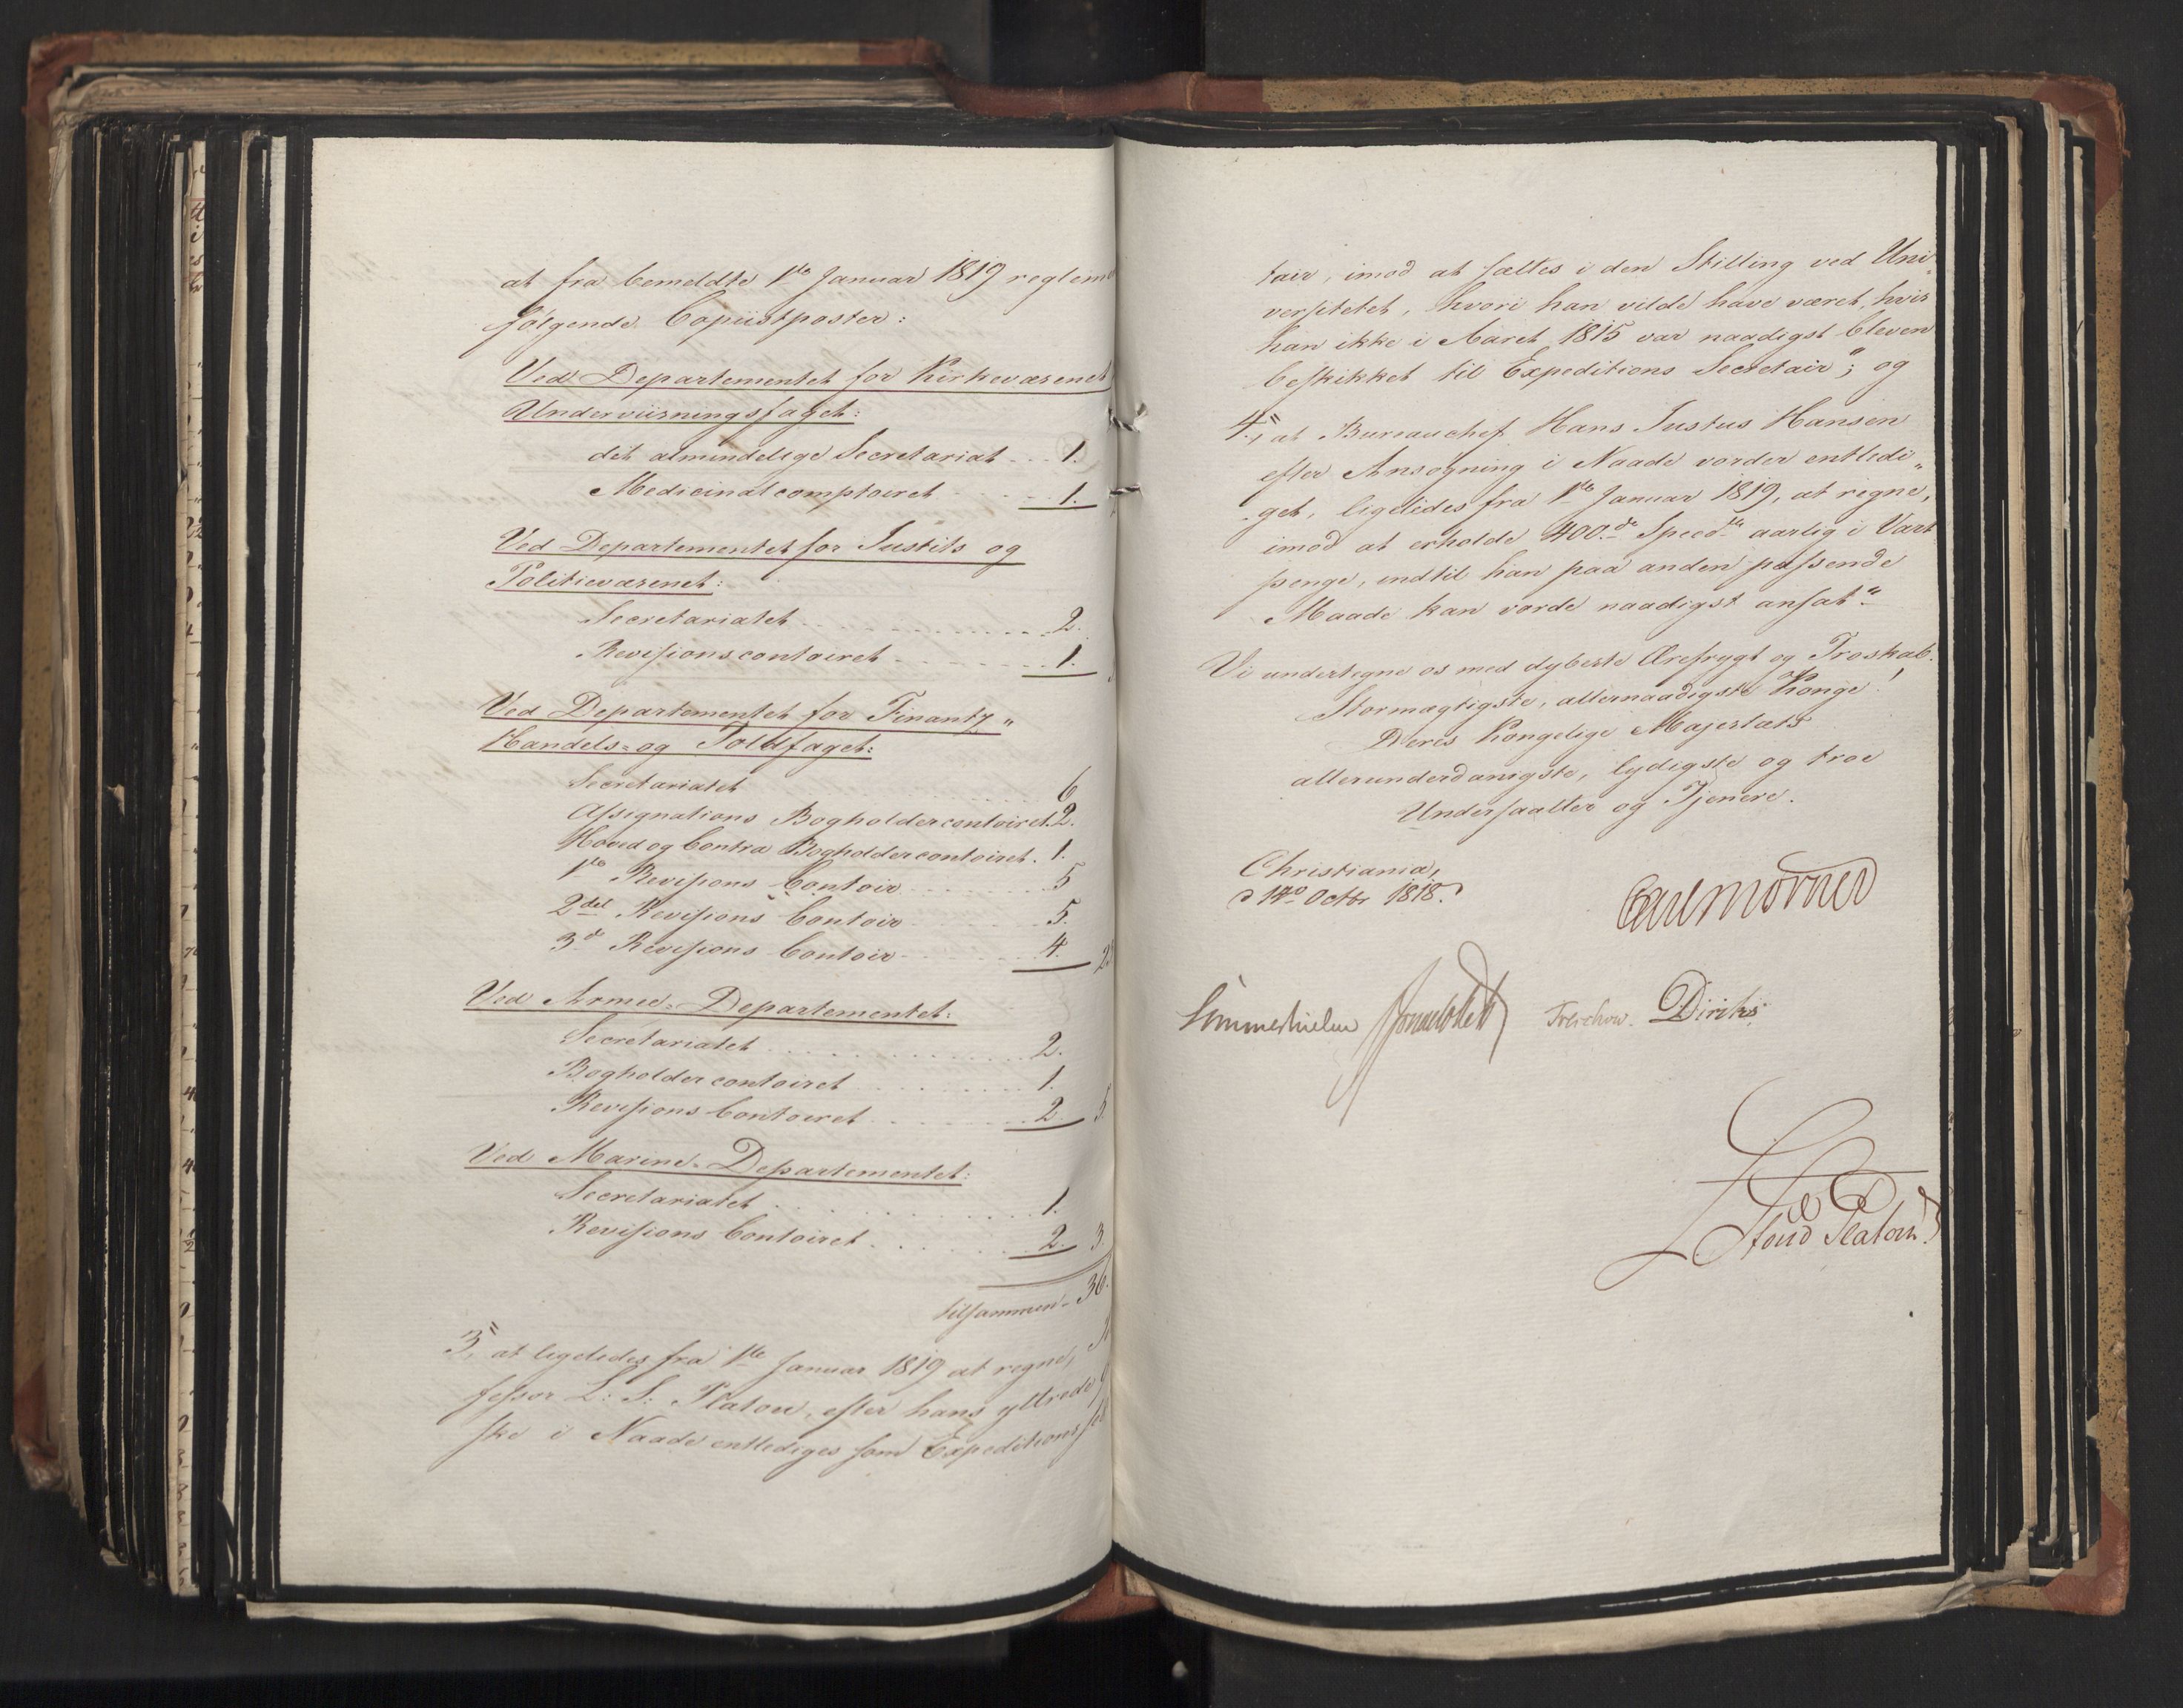 at fra bemeldte 1ste Januar 1819 reglem
følgende Copiistposter:
Ved Departementet for Kirkevæsenet
Underviisningsfaget:
det almindelige Secretariat 1.
Medicinalcomptoiret 1.
Ved Departementet for Justits og
Politievæsenet:
Secretariatet 2.
Revisionscontoiret 1.
Ved Departementet for Finantz,,
Handels- og Toldfaget:
Secretariatet 6
Assignations Bogholdercontoiret 2.
Hoved og Contra Bogholdercontoiret. 1.
1ste Revisions Contoir 5
2det Revisions Contoir 5.
3d Revisions Contoir 4. 23
Ved Armee-Departementet:
Secretariatet 2.
Bogholdercontoiret 1.
Revisions Contoiret 2. 5.
Ved Marine-Departementet:
Secretariatet 1.
Revisions Contoiret 2. 3.
tilsammen 36.
3, at ligeledes fra 1ste Januar 1819 at regne,
fessor L: S: Platou, efter hans yttrede
ske i Naade entlediges som Expeditions
tair, imod at sættes i den Stilling ved Uni,,
versitetet, hvori han vilde have været, hvis
han ikke i Aaret 1815 var naadigst bleven
beskikket til Expeditions Secretair"; og
4, at Bureauchef Hans Justus Hansen
efter Ansøgning i Naade vorder entledi,,
get, ligeledes fra 1ste Januar 1819, at regne,
imod at erholde 400.de Specd. aarlig i Vart
penge, indtil han paa anden passende
Maade kan vorde naadigst ansat"
Vi undertegne os med dybeste Ærefrygt og Troskab.
Stormægtigste, allernaadigste Konge!
Deres Kongelige Majestæts
allerunderdanigste, lydigste og troe
Undersaatter og Tjenere.
Christiania,
d 14o Octbr 1818.
Carl Mörner
Sommerhielm Treschow. Diriks
Stoud Platou